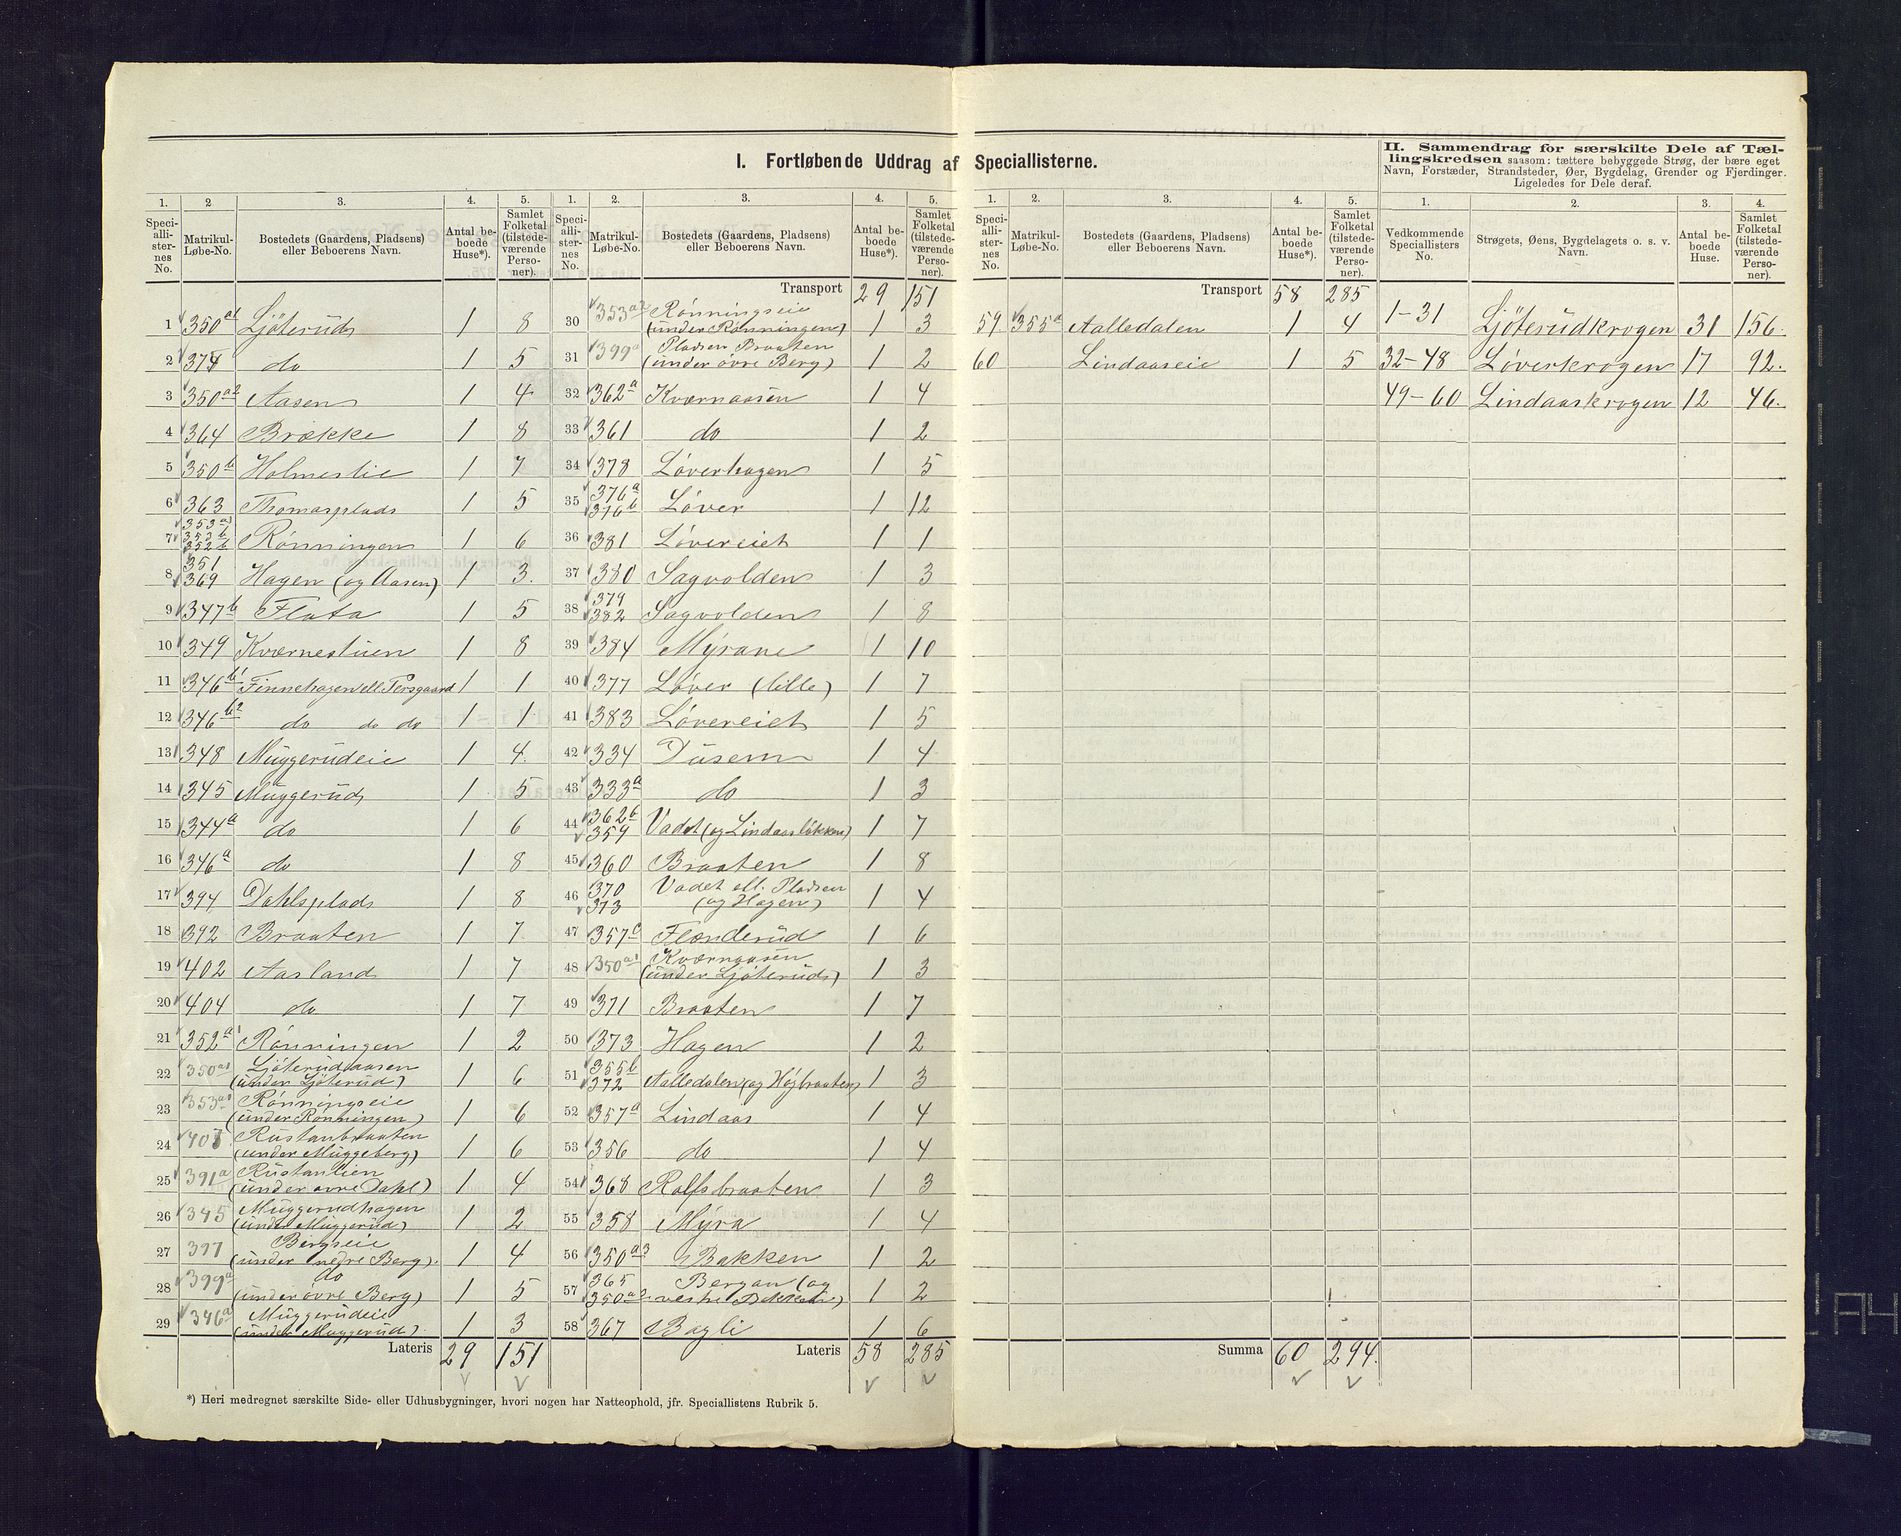 I. Fortløbende Uddrag af Speciallisterne.
II. Sammendrag for særskilte Dele af Tællingskredsen saasom: tættere bebyggede Strøg, der bære eget
Navn, Forstæder, Strandsteder, Øer, Bygdelag, Grender og Fjerdinger.
Ligeledes for Dele deraf.
1. 2 3. 4. 5.
Speciallisternes No. Matrikul-Løbe-No. Bostedets (Gaardens, Pladsens) eller Beboerens Navn. Antal beboede Huse*). Samlet Folketal (tilstedeværende Personer).
1 350 a1 Ljøterud 1 8
2 375 do 1 5
3 350 a2 Aasen 1 4
4 364 Brække 1 8
5 350 b Holmestie 1 7
6 363 Thomasplads 1 5
7 353 a1 353 b 352 b Rønningen 1 6
8 351 369 Hagen (og Aasen) 1 3.
9 347 b Flata 1 5
10 349 Kværnestuen 1 8
11 346 b1 Finnehagen ell. Persgaard 1 1
12 346 b2 do do do 1 1
13 348 Muggerudeie 1 4.
14 345 Muggerud 1 5
15 344 a do 1 6
16 346 a do 1 8
17 394 Dahlsplads 1 8
18 392 Braaten 1 7
19 402 Aasland 1 7
20 404 do 1 7
21 352 a1 Rønningen 1 2
22 350 a1 Ljøterudaasen
(under Ljøterud) 1 6
23 353 a1 Rønningseie
(under Rønningen) 1 6
24 Rustanbraaten
(under Muggeberg) 1 6
25 391 a Rustanlien
(under øvre Dahl) 1 4
26 345 Muggerudhagen
(under Muggerud) 1 2
27 397 Bergseie
(under nedre Berg). 1 4
28 399 a do
(under øvre Berg) 1 5
29 346 a Muggerudeie
(under Muggerud). 1 3
Lateris 29 151
1. 2. 3. 4. 5.
Speciallisternes No. Matrikul-Løbe-No. Bostedets (Gaardens, Pladsens) eller Beboerens Navn. Antal beboede Huse*). Samlet Folketal (tilstedeværende Personer).
Transport 29 151
30 353 a2 Rønningseie
(under Rønningen) 1 3
31 399 a Pladsen Braaten
(under øvre Berg) 1 2
32 362 a Kværnaasen 1 4
33 361 do 1 2
34 378 Løverhagen 1 5
35 376 a 376 b Løver 1 12
36 381 Løvereiet 1 1
37 380 Sagvolden 1 3
38 379 382 Sagvolden 1 8
39 384 Myrane 1 10
40 377 Løver (lille) 1 7
41 383 Løvereiet 1 5
42 334 Dusem 1 4
43 333 a do 1 3
44 362 b 359 Vadet (og Lindaasløkken) 1 7
45 360 Braaten 1 8
46 370 373 Vadet ell. Pladsen
(og Hagen) 1 4
47 357 c Flønderud 1 6
48 350 a1 Kværnaasen
(under Ljøterud) 1 3
49 371 Braaten 1 7
50 373 Hagen 1 2
51 355 b 372 Aalledalen (og Højbraaten) 1 3
52 357 a Lindaas 1 4
53 356 do 1 4
54 368 Rolfsbraaten 1 3
55 358 Myra 1 4
56 350 a3 Bakken 1 2
57 365 350 a2 Bergan (og
vestre Bakken) 1 2
58 367 Bagli 1 6
Lateris 58 285
*) Heri medregnet særskilte Side- eller Udhusbygninger, hvori nogen har Natteophold, jfr. Speciallistens Rubrik 5.
1. 2. 3. 4. 5.
Speciallisternes No. Matrikul-Løbe-No. Bostedets (Gaardens, Pladsens) eller Beboerens Navn. Antal beboede Huse*). Samlet Folketal (tilstedeværende Personer).
Transport 58 285
59. 355 a Aalledalen 1 4
60 Lindaaseie 1 5
Summa 60 294.
1. 2. 3. 4.
Vedkommende Speciallisters No. Strøgets, Øens, Bygdelagets o. s. v. Navn. Antal beboede Huse. Samlet Folketal (tilstedeværende Personer).
1-31 Ljøterudkrogen 31 156.
32-48 Løverkrogen 17 92.
49-60 Lindaaskrogen 12 46.